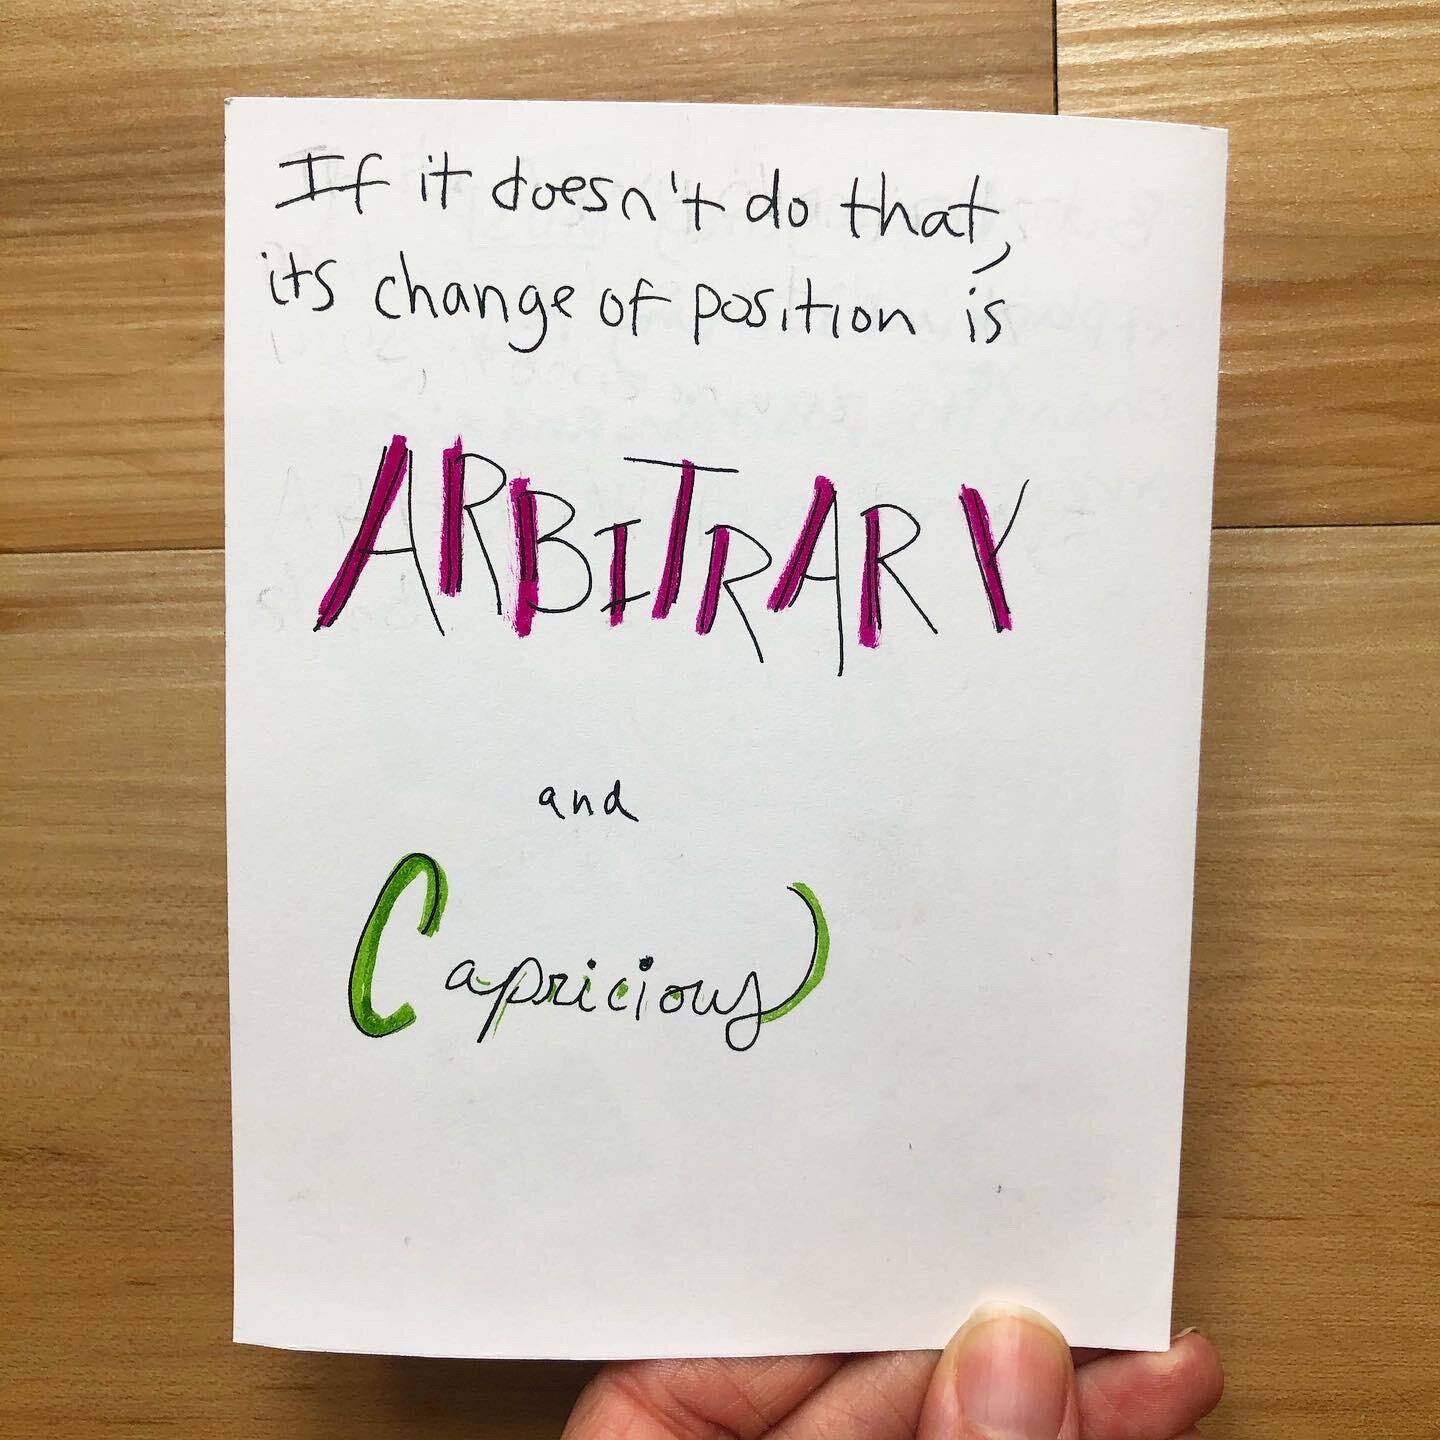 If it doesn't do that,
its change of position is
ARBITRARY
and
Capricious